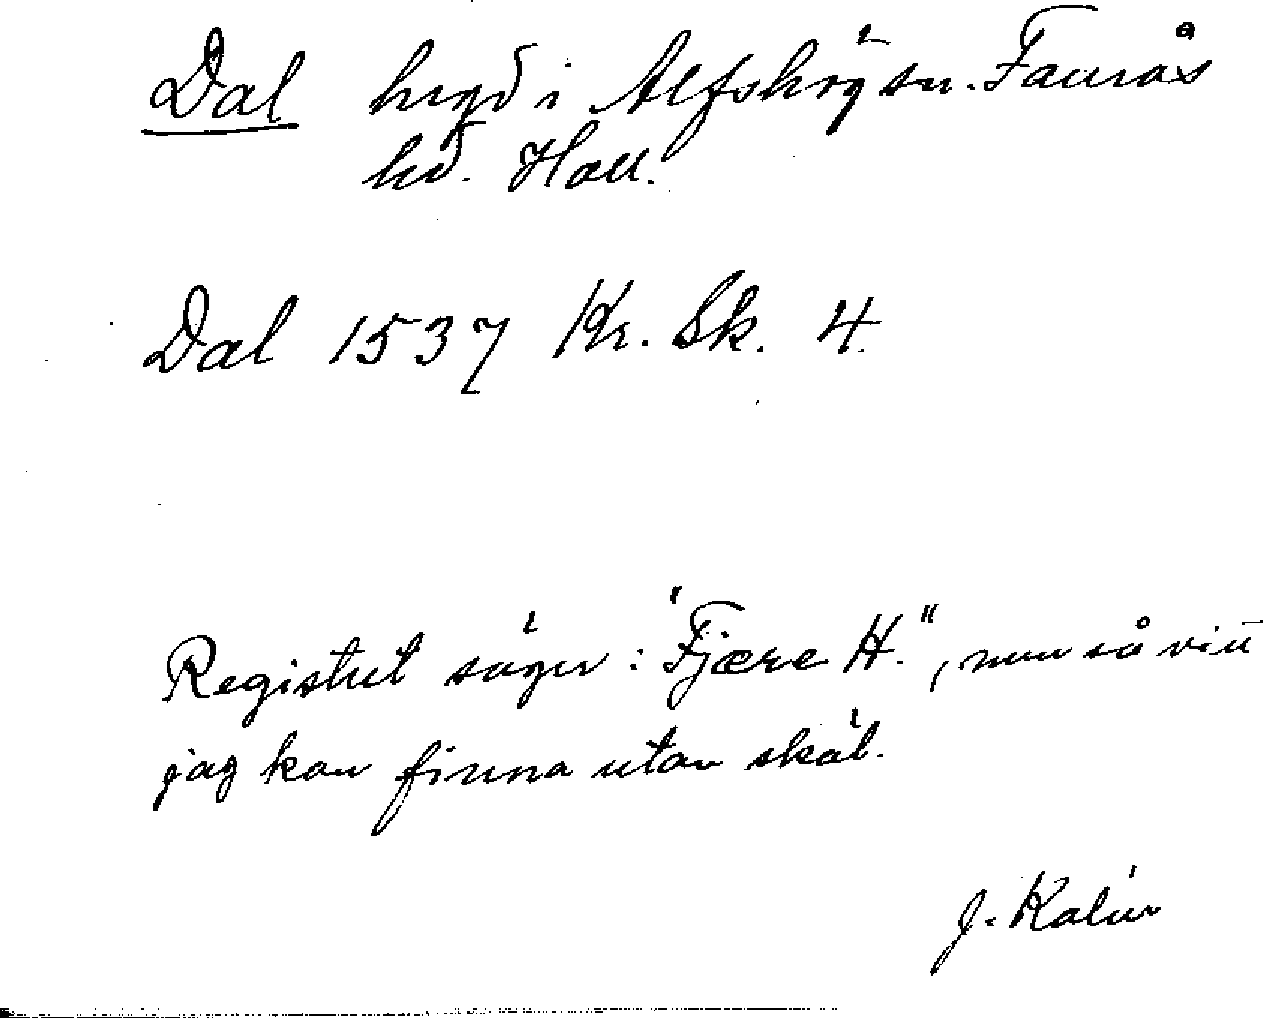 Dal hgd i Alfshög sn. Faurås
hd. Hall.
Dal 1537 Kr. Sk. 4.
Registret säger: "Fjære H.", men så vitt
jag kan finna utan skäl.
J. Kalén